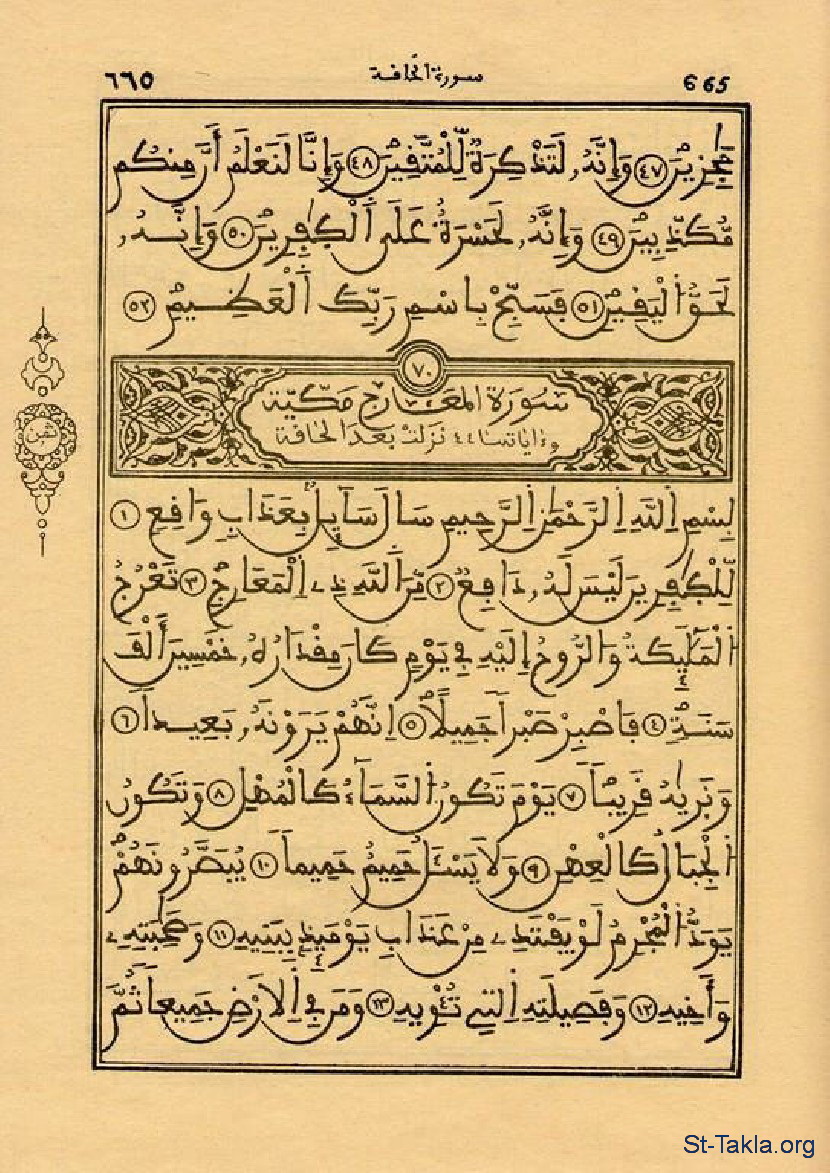 ٦٦٥ سورة الحاقة 665
حَٰجِزِينَ ٤٧ وَإِنَّهُۥ لَتَذْكِرَةٌ لِّلْمُتَّقِينَ ٤٨ وَإِنَّا لَنَعْلَمُ أَنَّ مِنكُم
مُّكَذِّبِينَ ٤٩ وَإِنَّهُۥ لَحَسْرَةٌ عَلَى ٱلْكَٰفِرِينَ ٥٠ وَإِنَّهُۥ
لَحَقُّ ٱلْيَقِينِ ٥١ فَسَبِّحْ بِاسْمِ رَبِّكَ ٱلْعَظِيمِ ٥٢
٧٠
سورة المعارج مكية
وءاياتها ٤٤ نزلت بعد الحاقة
ثمن
بِسْمِ ٱللَّهِ ٱلرَّحْمَٰنِ ٱلرَّحِيمِ سَالَ سَآئِلٌ بِعَذَابٍ وَاقِعٍ ١
لِّلْكَٰفِرِينَ لَيْسَ لَهُۥ دَافِعٌ ٢ مِّنَ ٱللَّهِ ذِے ٱلْمَعَارِجِ ٣ تَعْرُجُ
ٱلْمَلَٰٓئِكَةُ وَالرُّوحُ إِلَيْهِ فِے يَوْمٍ كَانَ مِقْدَارُهُۥ خَمْسِينَ أَلْفَ
سَنَةٍ ٤ فَاصْبِرْ صَبْراً جَمِيلاً ٥ اِنَّهُمْ يَرَوْنَهُۥ بَعِيداً ٦
وَنَرَىٰهُ قَرِيباً ٧ يَوْمَ تَكُونُ ٱلسَّمَآءُ كَالْمُهْلِ ٨ وَتَكُونُ
ٱلْجِبَالُ كَالْعِهْنِ ٩ وَلَا يَسْـَٔلُ حَمِيمٌ حَمِيماً ١٠ يُبَصَّرُونَهُمْ
يَوَدُّ ٱلْمُجْرِمُ لَوْ يَفْتَدِے مِنْ عَذَابِ يَوْمَئِذٍ بِبَنِيهِ ١١ وَصَٰحِبَتِهِۦ
وَأَخِيهِ ١٢ وَفَصِيلَتِهِ ٱلتِے تُـْٔوِيهِ ١٣ وَمَن فِے ٱلَارْضِ جَمِيعاً ثُمَّ
St-Takla.org